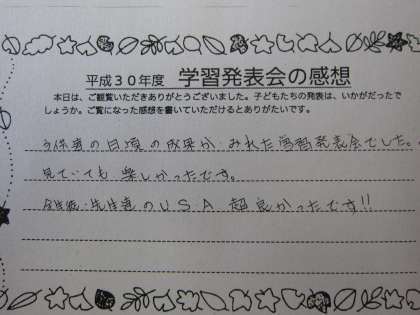 平成30年度 学習発表会の感想
本日は、ご観覧いただきありがとうございました。子どもたちの発表は、いかがだったで
しょうか。ご覧になった感想を書いていただけるとありがたいです。
子供達の日頃の成果が、みれた学習発表会でした。
見ていても 楽しかったです。
先生達のUSA 超良かったです!!